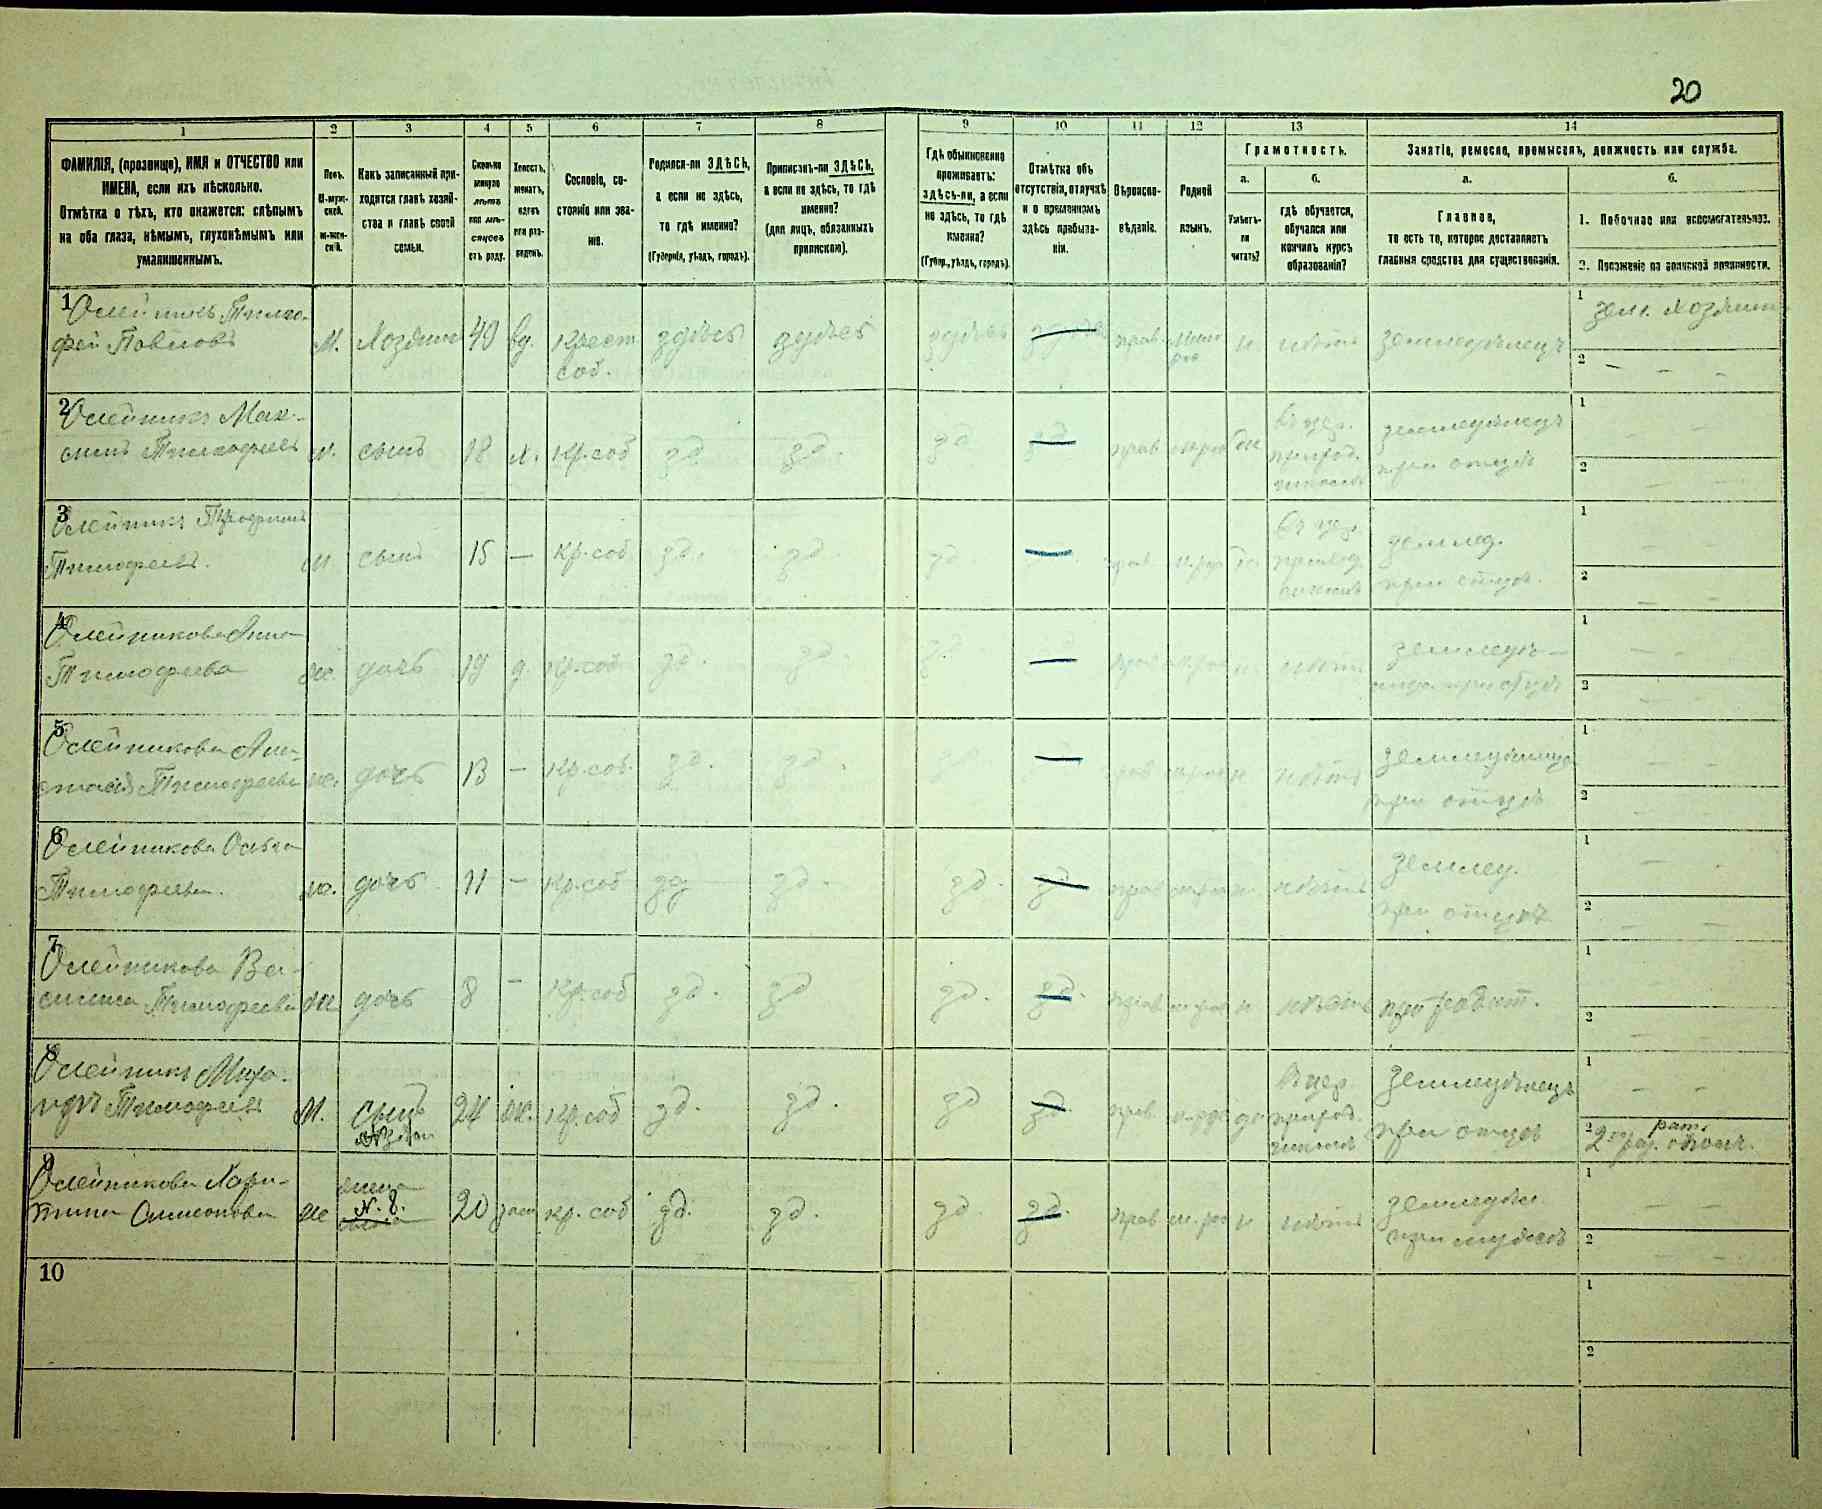 20
1 2 3 4 5 6 7 8 9 10 11 12 13 14
ФАМИЛІЯ, (прозвище), ИМЯ и ОТЧЕСТВО или
ИМЕНА, если ихъ нѣсколько.
Отмѣтка о тѣхъ, кто окажется: слѣпымъ
на оба глаза, нѣмымъ, глухонѣмымъ или
умалишеннымъ.
Полъ.
М-муж-
ской.
ж-жен-
скій.
Какъ записанный при-
ходится главѣ хозяй-
ства и главѣ своей
семьи.
Сколько
минуло
лѣтъ
или мѣ-
сяцевъ
отъ роду.
Холостъ,
женатъ,
вдовъ
или раз-
веденъ.
Сословіе, со-
стояніе или зва-
ніе.
Родился-ли ЗДѢСЬ,
а если не здѣсь,
то гдѣ именно?
(Губернія, уѣздъ, городъ).
Приписанъ-ли ЗДѢСЬ,
а если не здѣсь, то гдѣ
именно?
(для лицъ, обязанныхъ
припискою).
Гдѣ обыкновенно
проживаетъ:
здѣсь-ли, а если
не здѣсь, то гдѣ
именно?
(Губер., уѣздъ, городъ).
Отмѣтка объ
отсутствіи, отлучкѣ
и о временномъ
здѣсь пребыва-
ніи.
Вѣроиспо-
вѣданіе.
Родной
языкъ.
Грамотность.
а.
Умѣетъ-
ли
читать?
б.
гдѣ обучается,
обучался или
кончилъ курсъ
образованія?
Занятіе, ремесло, промыселъ, должность или служба.
а.
Главное,
то есть то, которое доставляетъ
главныя средства для существованія.
б.
1. Побочное или вспомогательное.
2. Положеніе по воинской повинности.
1 Олейникъ Тимо-
фей Павловъ М. Хозяинъ 49 вд. Крест. соб. здѣсь здѣсь здѣсь прав. н. нѣтъ земледѣлецъ 1 зем. хозяин 2 - - -
2 Олейникъ Мак-
симъ Тимофеевъ м. сынъ 18 х. Кр. соб зд. зд. зд. зд. прав земледѣлецъ
при отцѣ 1 - - 2 - -
3 Олейникъ
Тимофеевъ. м. сынъ 15 — Кр. соб зд. зд. зд. прав землед.
при отцѣ. 1 - - 2 - -
4 Олейникова Анна
Тимофеева ж. дочь 19 д. кр. соб. зд. зд. зд. прав н. нѣтъ 1 - - 2 - -
5 Олейникова Ана-
стасія Тимофеева ж. дочь 13 — кр. соб. зд. зд. прав н нѣтъ
при отцѣ 1 - - 2 - -
6 Олейникова Ольга
Тимофеева. ж. дочь 11 — Кр. соб зд зд. зд. зд. прав н. нѣтъ землед.
при отцѣ 1 - - 2 - -
7 Олейникова Ва-
силиса Тимофеева ж дочь 8 — Кр. соб зд. зд зд. зд. прав н нѣтъ при родит. 1 2 - -
8 Олейникъ
Тимофеевъ М. Сынъ 24 ж. Кр. соб зд. зд. зд зд. прав. земледѣлецъ
при отцѣ 1 - - 2 рат.
2го раз. ополч.
9 Олейникова Хари-
тина Симонова ж жена
N. 8. 20 зам кр. соб зд. зд. зд. зд. прав н нѣтъ
при мужѣ 1 - - 2 - -
10 1 2